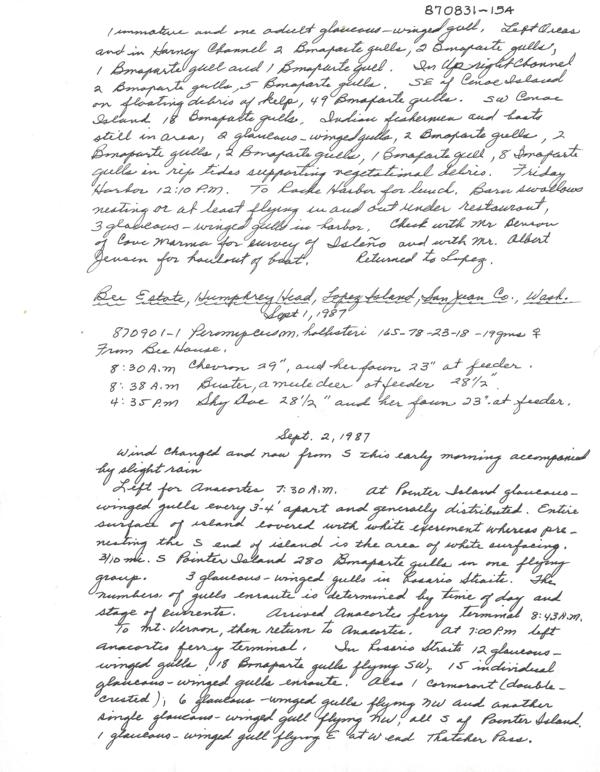 870831-154
1 immature and one adult glaucous-winged gull. Left Orcas
and in Harney Channel 2 Bonaparte gulls, 2 Bonaparte gulls,
1 Bonaparte gull and 1 Bonaparte gull. In Upright Channel
2 Bonaparte gulls, 5 Bonaparte gulls. SE of Canoe Island
on floating debris of kelp, 49 Bonaparte gulls. SW Canoe
Island 18 Bonaparte gulls, Indian fishermen and boats
still in area, 2 glaucous-winged gulls, 2 Bonaparte gulls, 2
Bonaparte gulls, 2 Bonaparte gulls, 1 Bonaparte gull, 8 Bonaparte
gulls in rip tides supporting negetational debris. Friday
Harbor 12:10 P.M. To Roche Harbor for lunch. Barn swallows
nesting or at least flying in and out under restaurant,
3 glaucous-winged gulls in harbor. Check with Mr Benson
of Cove Marina for survey of Isleño and with Mr. Albert
Jensen for haulout of boat. Returned to Lopez.
Bee Estate, Humphrey Head, Lopez Island, San Juan Co., Wash.
Sept 1, 1987
870901-1 Peromyscus m. hollisteri 165-78-23-18-19gms ♀
From Bee House.
8:30 A.m Chevron 29", and her fawn 23" at feeder.
8:38 A.M Buster, a mule deer at feeder 28½"
4:35 P.M Sky Doe 28½" and her fawn 23" at feeder.
Sept. 2, 1987
Wind changed and now from S this early morning accompanied
by slight rain
Left for Anacortes 7:30 A.M. At Pointer Island glaucous-
winged gulls every 3-4' apart and generally distributed. Entire
surface of island covered with white exerement whereas pre-
nesting the S end of island is the area of white surfacing.
3/10 mi. S Pointer Island 280 Bonaparte gulls in one flying
group. 3 glaucous-winged gulls in Rosario Straits. The
numbers of gulls enroute is determined by time of day and
stage of currents. Arrived Anacortes ferry terminal 8:43 A.M.
To Mt. Vernon, then return to Anacortes. At 7:00 P.M left
Anacortes ferry terminal. In Rosario Straits 12 glaucous-
winged gulls, 18 Bonaparte gulls flying SW, 15 individual
glaucous-winged gulls enroute. Also 1 cormorant (double-
crested), 6 glaucous-winged gulls flying NW and another
single glaucous-winged gull flying NW, all S of Pointer Island.
1 glaucous-winged gull flying E at W end Thatcher Pass.